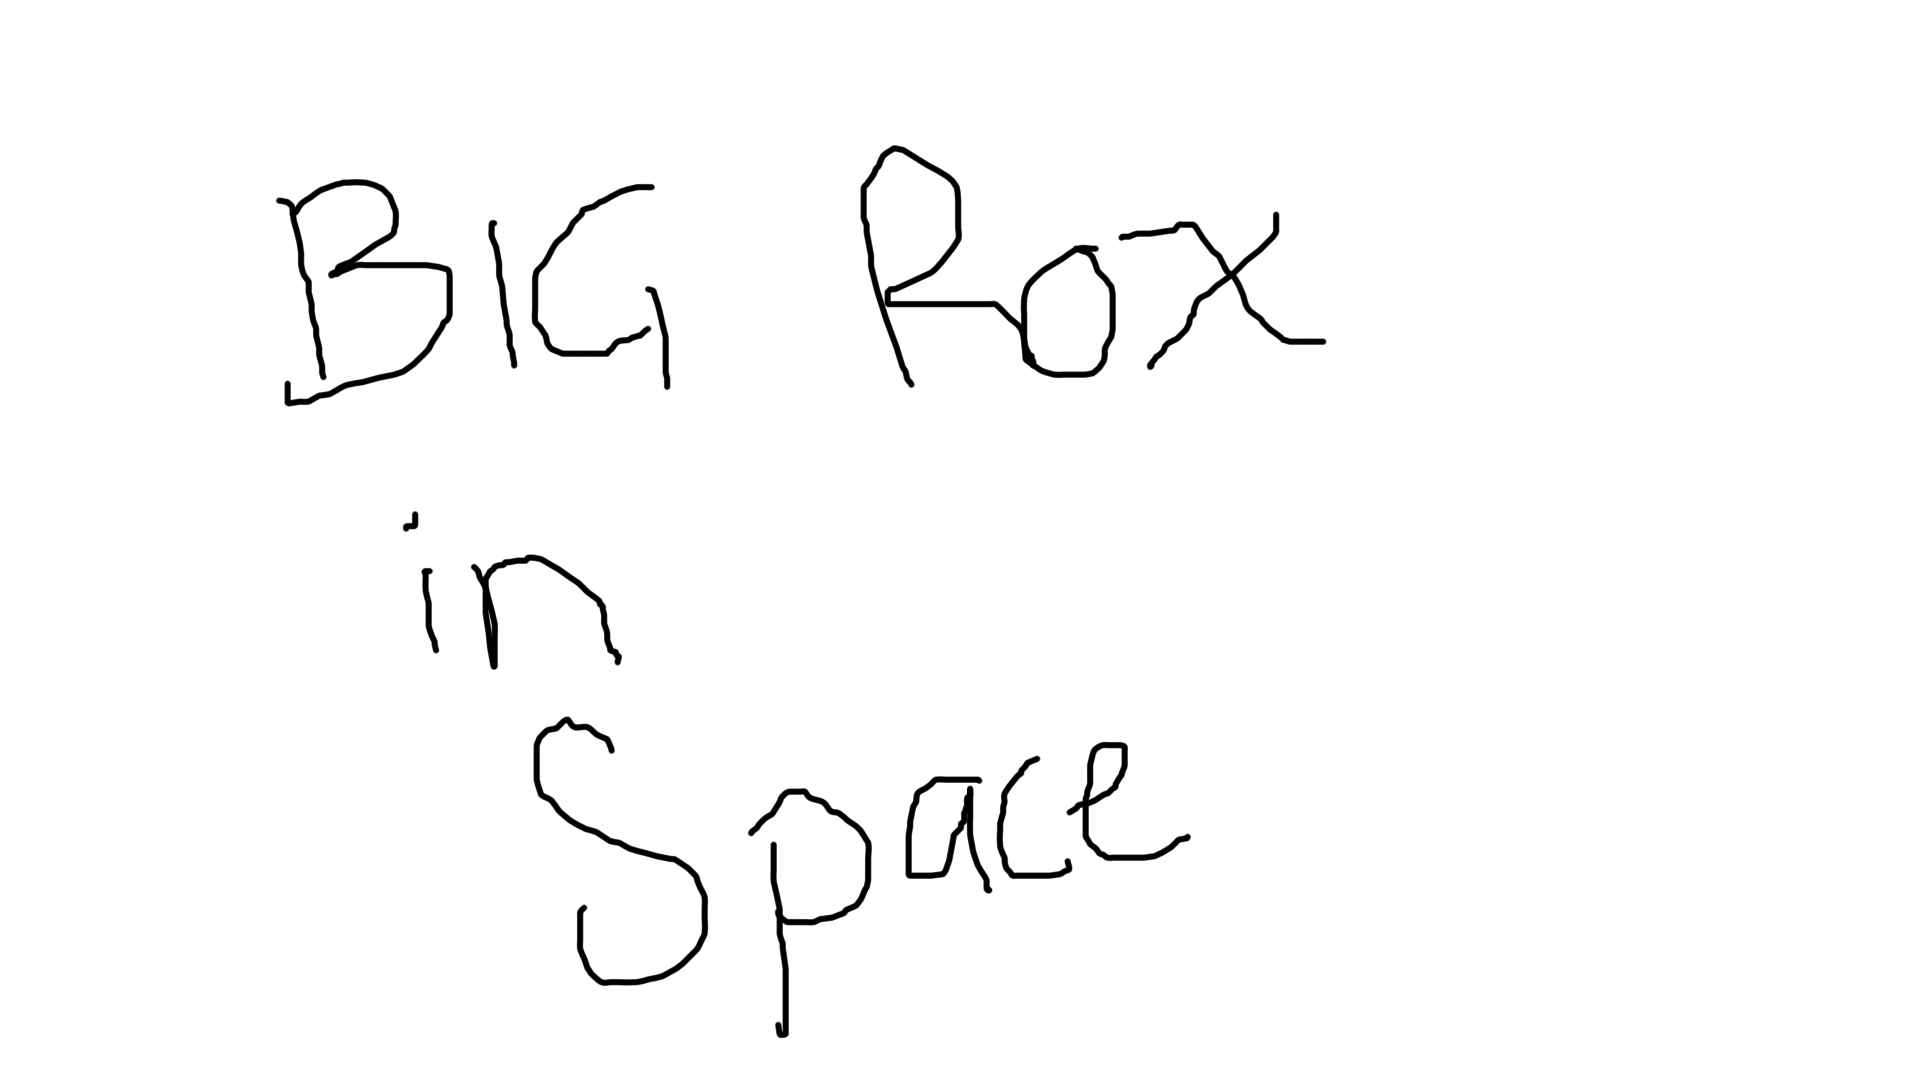 BIG Rox
in
Space